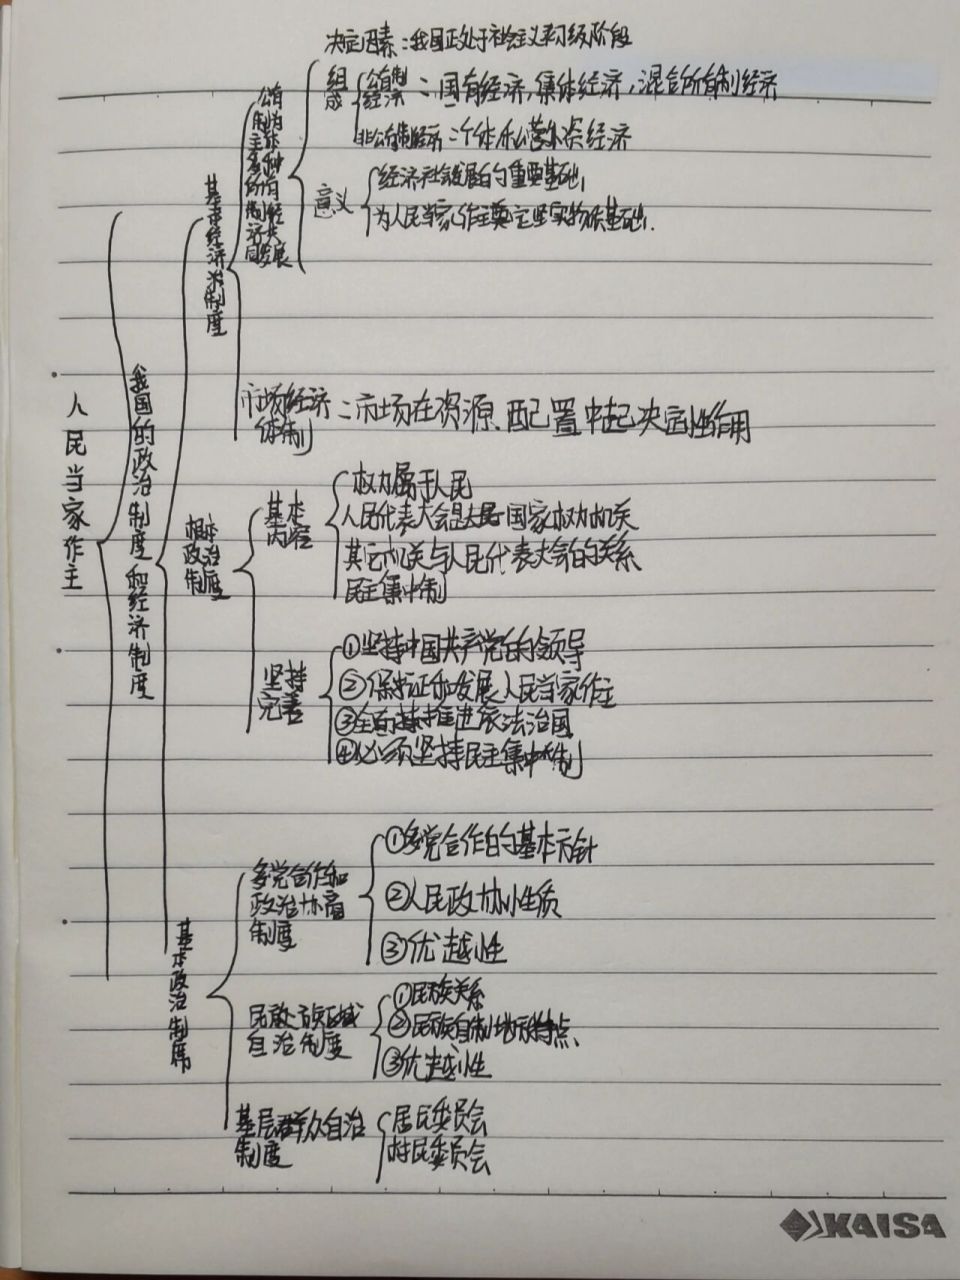 决定因素：我国正处于社会主义初级阶段
组成
公有制经济：国有经济，集体经济，混合所有制经济
非公有制经济：个体私营外资经济
公有制为主体多种所有制经济共同发展
意义
经济社会发展的重要基础，
为人民当家作主奠定坚实物质基础.
基本经济制度
市场经济体制：市场在资源配置中起决定性作用
人民当家作主
我国的政治制度和经济制度
根本政治制度
基本内容
权力属于人民
人民代表大会是国家权力机关
其它机关与人民代表大会的关系
民主集中制
坚持完善
①坚持中国共产党的领导
②保证和发展人民当家作主
③全面推进依法治国
④必须坚持民主集中制
基本政治制度
多党合作和政治协商制度
①多党合作的基本方针
②人民政协性质
③优越性
民族区域自治制度
①民族关系
②民族自制地方特点
③优越性
基层群众自治制度
居民委员会
村民委员会
KAISA